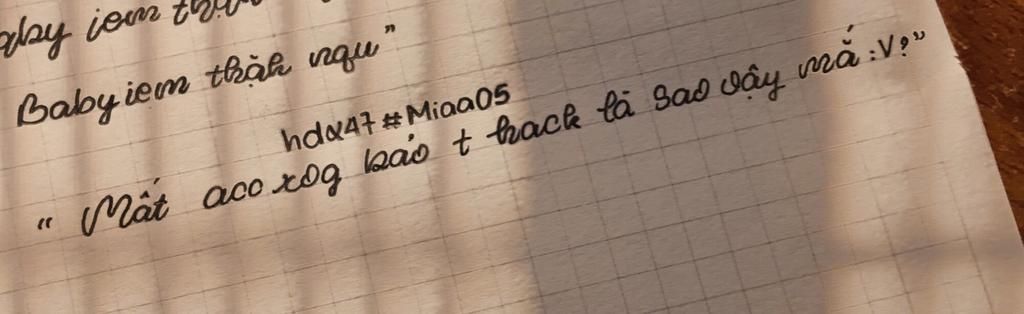 iem
Baby iem thặk ngu”
hdx47#Miaa05
“ Mất acc xog bảo t hack là sao vậy má :V?”